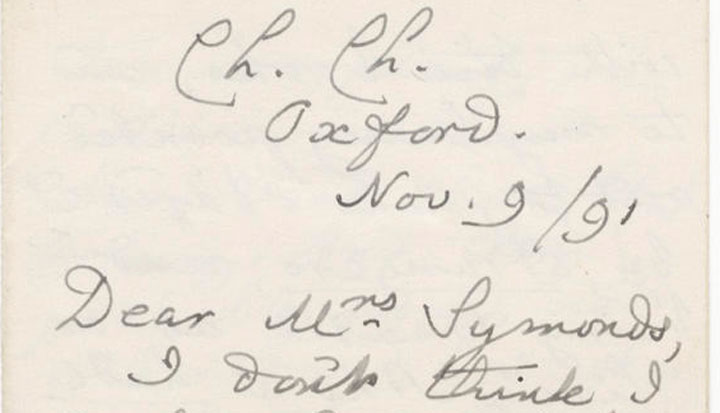 Ch. Ch.
Oxford.
Nov. 9/91
Dear Mrs Symonds,
I don't think I